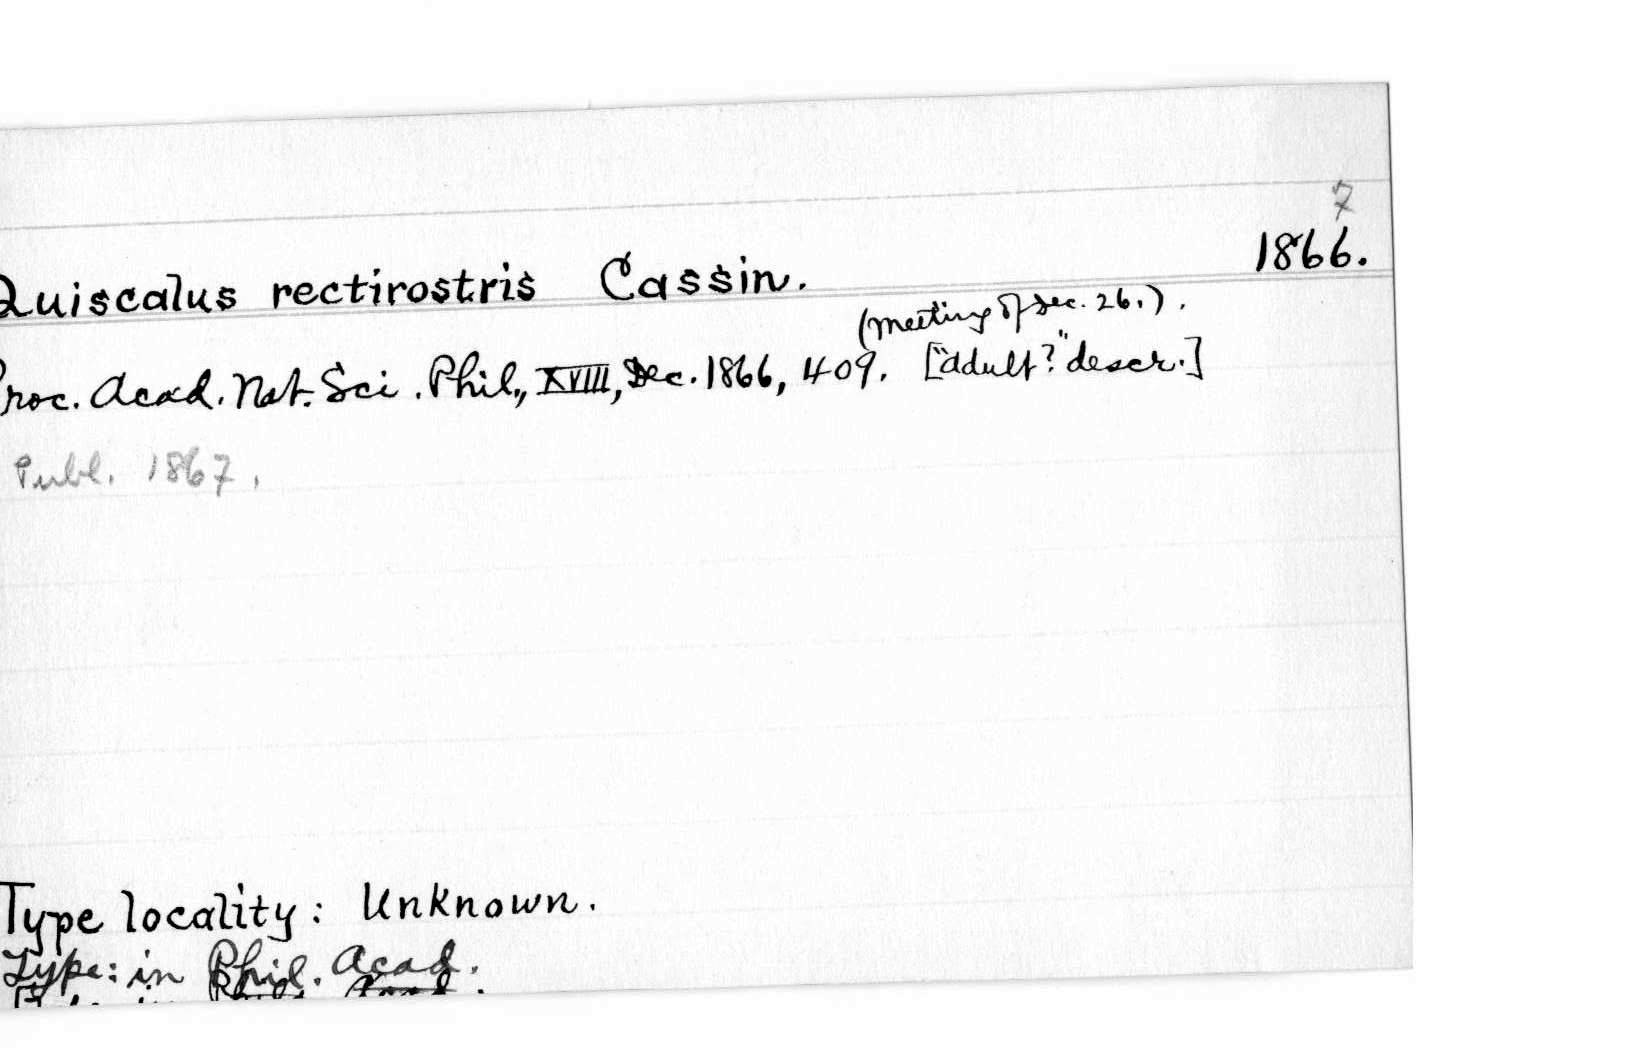 7
Quiscalus rectirostris Cassin. 1866.
(meeting of Dec. 26.).
Proc. Acad. Nat. Sci. Phil., XVIII, Dec. 1866, 409. ["adult?" descr.]
Publ. 1867.
Type locality: Unknown.
Type: in Phil. Acad.